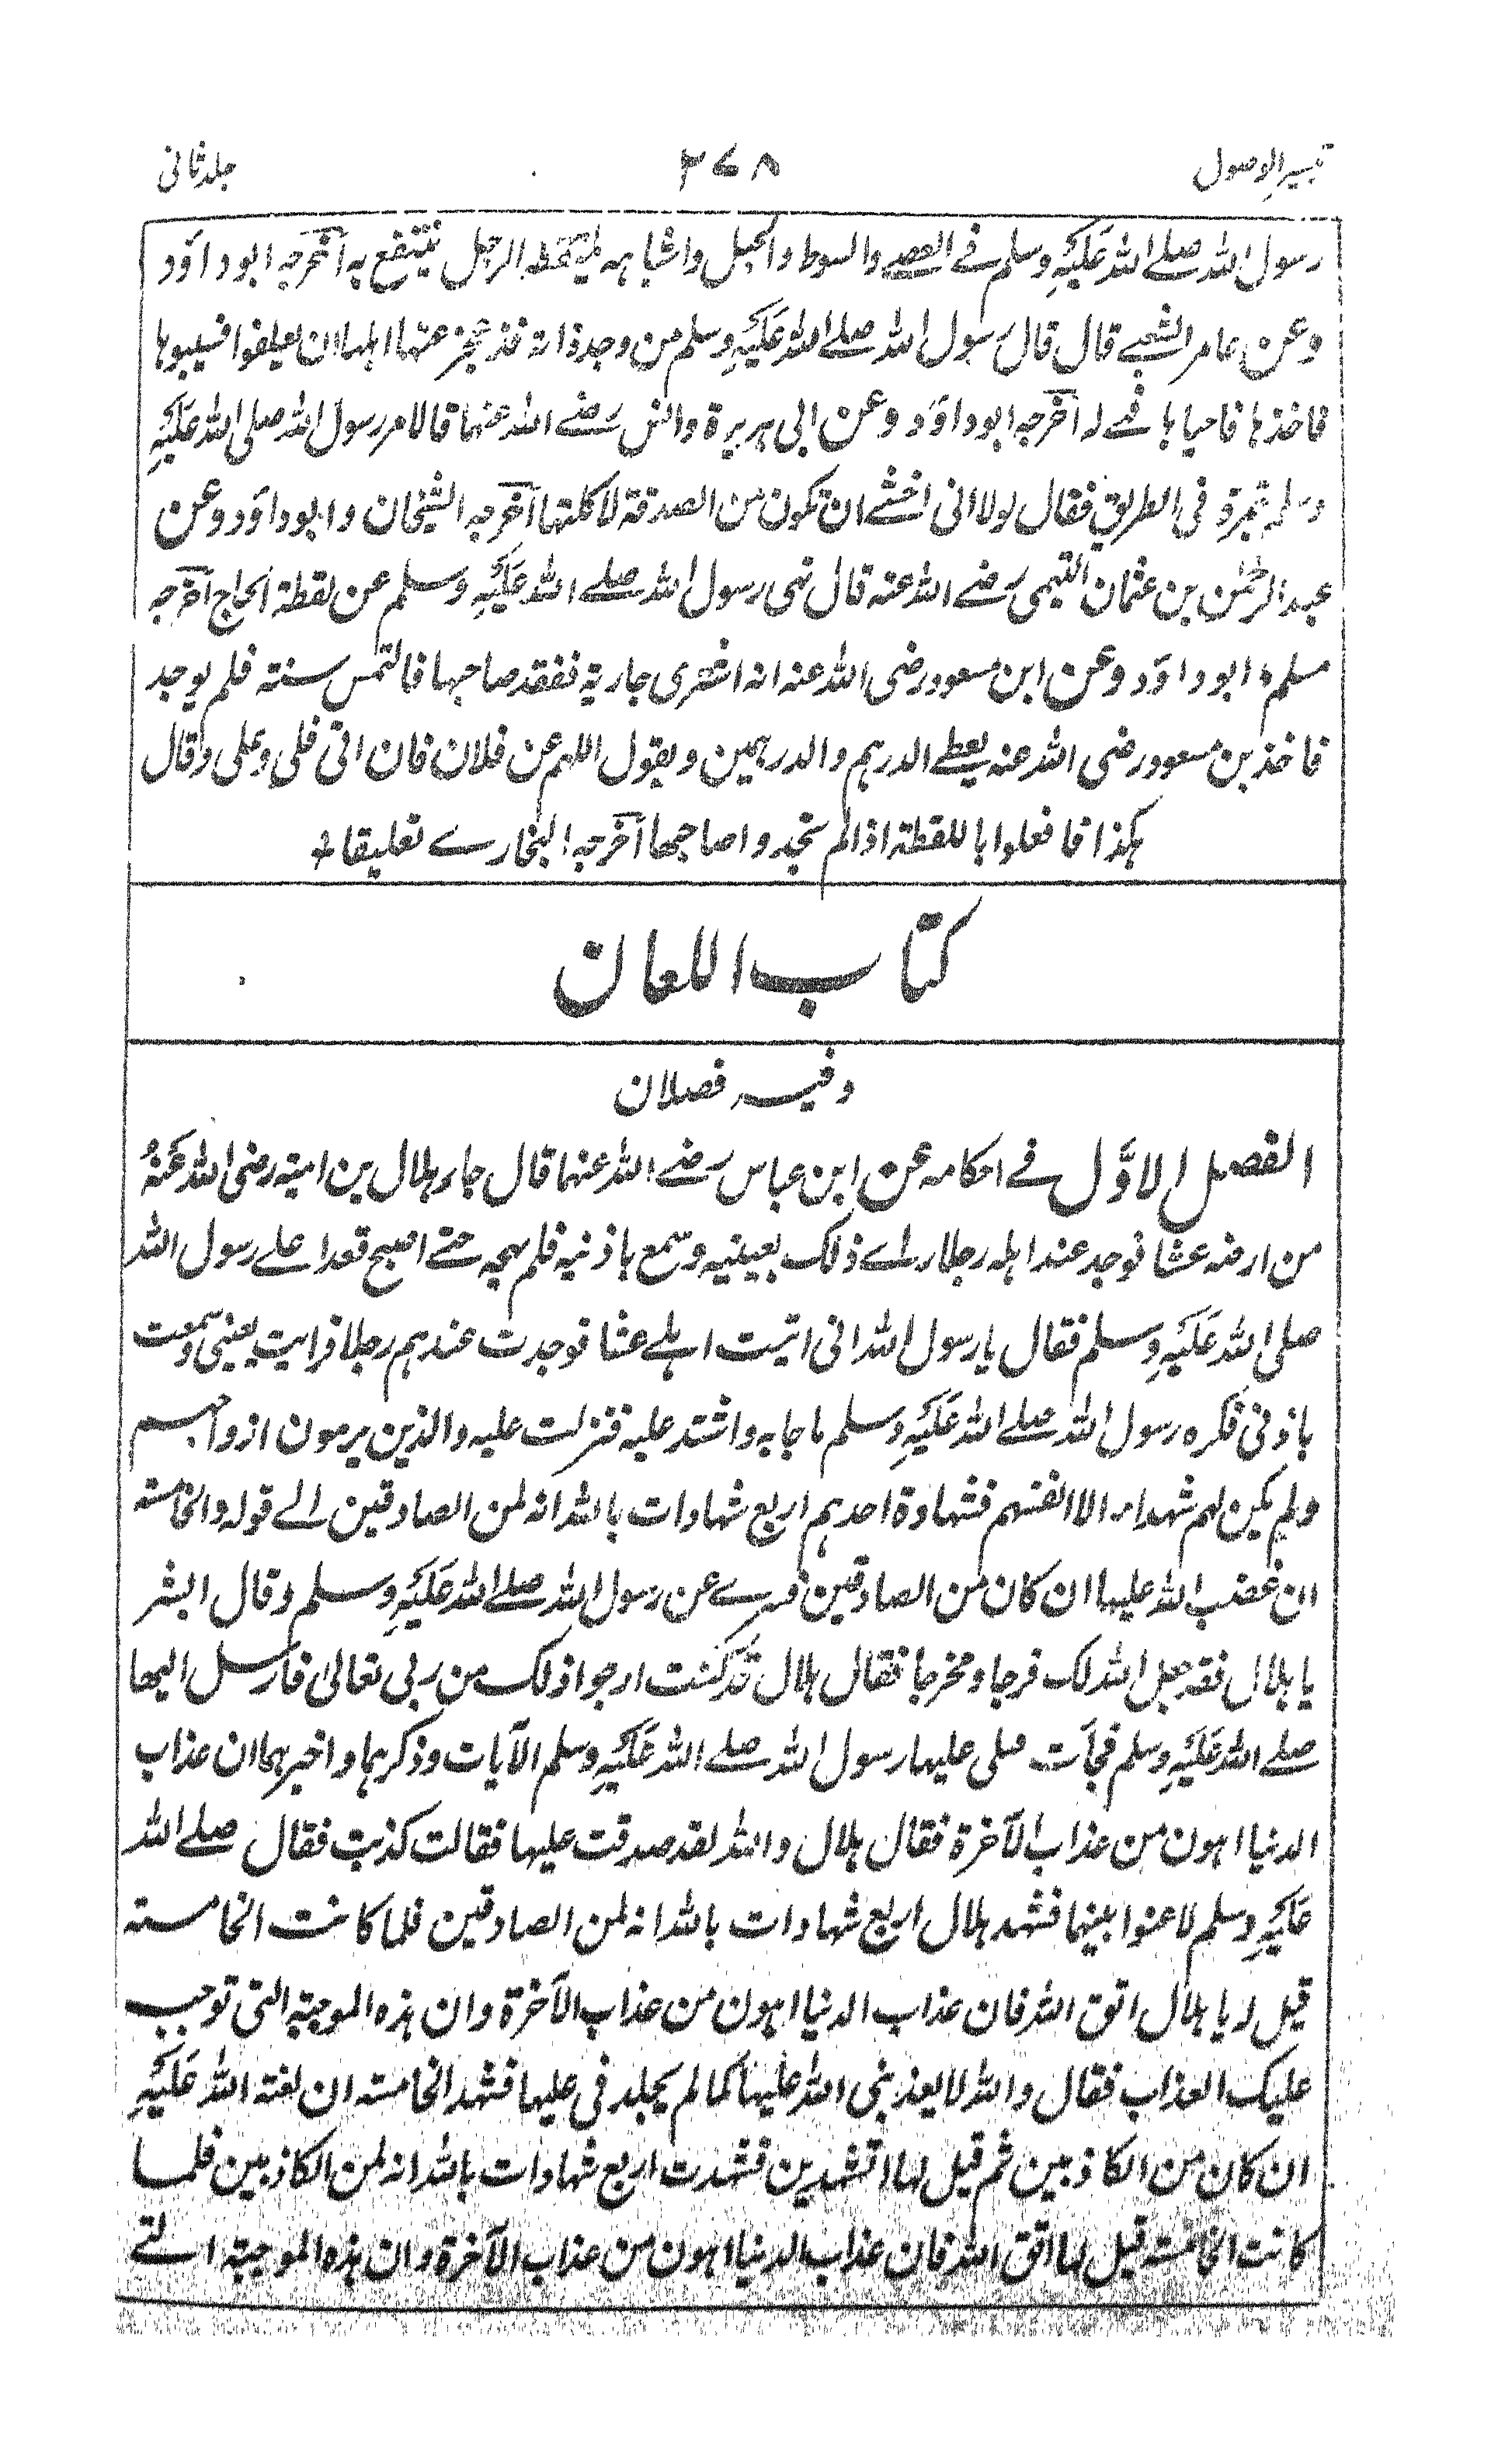 تيسير الاصول ٢٧٨ جلد ثانى
رسول الله صلے الله عَلَيْهِ وسلم فے العصے والسوط والحبل واشباهه يلتقطه الرجل ينتفع به اخرجه ابو داؤد
وعن عامر الشعبے قال قال رسول الله صلے الله عَلَيْهِ وسلم من وجد دابة قد عجز عنها اهلها ان يعلفوا فسيبوها
فاخذها فاحياها فهے له اخرجه ابو داؤد وعن ابى هريرة وانس رضے الله عنهما قالا مر رسول الله صلى الله عَلَيْهِ
وسلم بتمرة فى الطريق فقال لولا انى اخشے ان تكون من الصدقة لاكلتها اخرجه الشيخان وابو داؤد وعن
عبد الرحمٰن بن عثمان التيمى رضے الله عنه قال نهى رسول الله صلے الله عَلَيْهِ وسلم عن لقطة الحاج اخرجه
مسلم و ابو داؤد وعن ابن مسعود رضى الله عنه انه اشترى جارية ففقد صاحبها فالتمس سنة فلم يوجد
فاخذ بن مسعود رضى الله عنه يعطے الدرهم والدرهمين ويقول اللهم عن فلان فان اتى فلى وعلى وقال
هكذا فافعلوا باللقطة اذا لم تجدوا صاحبها اخرجه البخارے تعليقا
كتاب اللعان
وفيه فصلان
الفصل الاوَّل فے احكامه عن ابن عباس رضے الله عنهما قال جاء هلال بن امية رضى الله عَنْهُ
من ارضه عشا فوجد عند اهله رجلا راے ذلك بعينيه وسمع باذنيه فلم يهجه حتے اصبح فغدا علے رسول الله
صلى الله عَلَيْهِ وسلم فقال يا رسول الله انى اتيت اهلے عشا فوجدت عندهم رجلا فرايت بعينى وسمعت
باذنى فكره رسول الله صلے الله عَلَيْهِ وسلم ما جا به واشتد عليه فنزلت عليه والذين يرمون ازواجهم
ولم يكن لهم شهداء الا انفسهم فشهادة احدهم اربع شهادات بالله انه لمن الصادقين الے قوله والخامسة
ان غضب الله عليها ان كان من الصادقين فسرے عن رسول الله صلے الله عَلَيْهِ وسلم وقال ابشر
يا هلال فقد جعل الله لك فرجا ومخرجا فقال هلال قد كنت ارجو اذلك من ربى تعالىٰ فارسل اليها
صلے الله عَلَيْهِ وسلم فجآت فتلى عليها رسول الله صلے الله عَلَيْهِ وسلم الآيات وذكرهما واخبرهما ان عذاب
الدنيا اهون من عذاب الآخرة فقال هلال والله لقد صدقت عليها فقالت كذب فقال صلے الله
عَلَيْهِ وسلم لاعنوا بينهما فشهد هلال اربع شهادات بالله انه لمن الصادقين فلما كانت الخامسة
قيل له يا هلال اتق الله فان عذاب الدنيا اهون من عذاب الآخرة وان هذه الموجبة التى توجب
عليك العذاب فقال والله لا يعذبنى الله عليها كما لم يجلدنى عليها فشهد الخامسة ان لعنة الله عَلَيْهِ
ان كان من الكاذبين ثم قيل لها اتشهدين فشهدت اربع شهادات بالله انه لمن الكاذبين فلما
كانت الخامسة قيل لها اتق الله فان عذاب الدنيا اهون من عذاب الآخرة وان هذه الموجبة التے